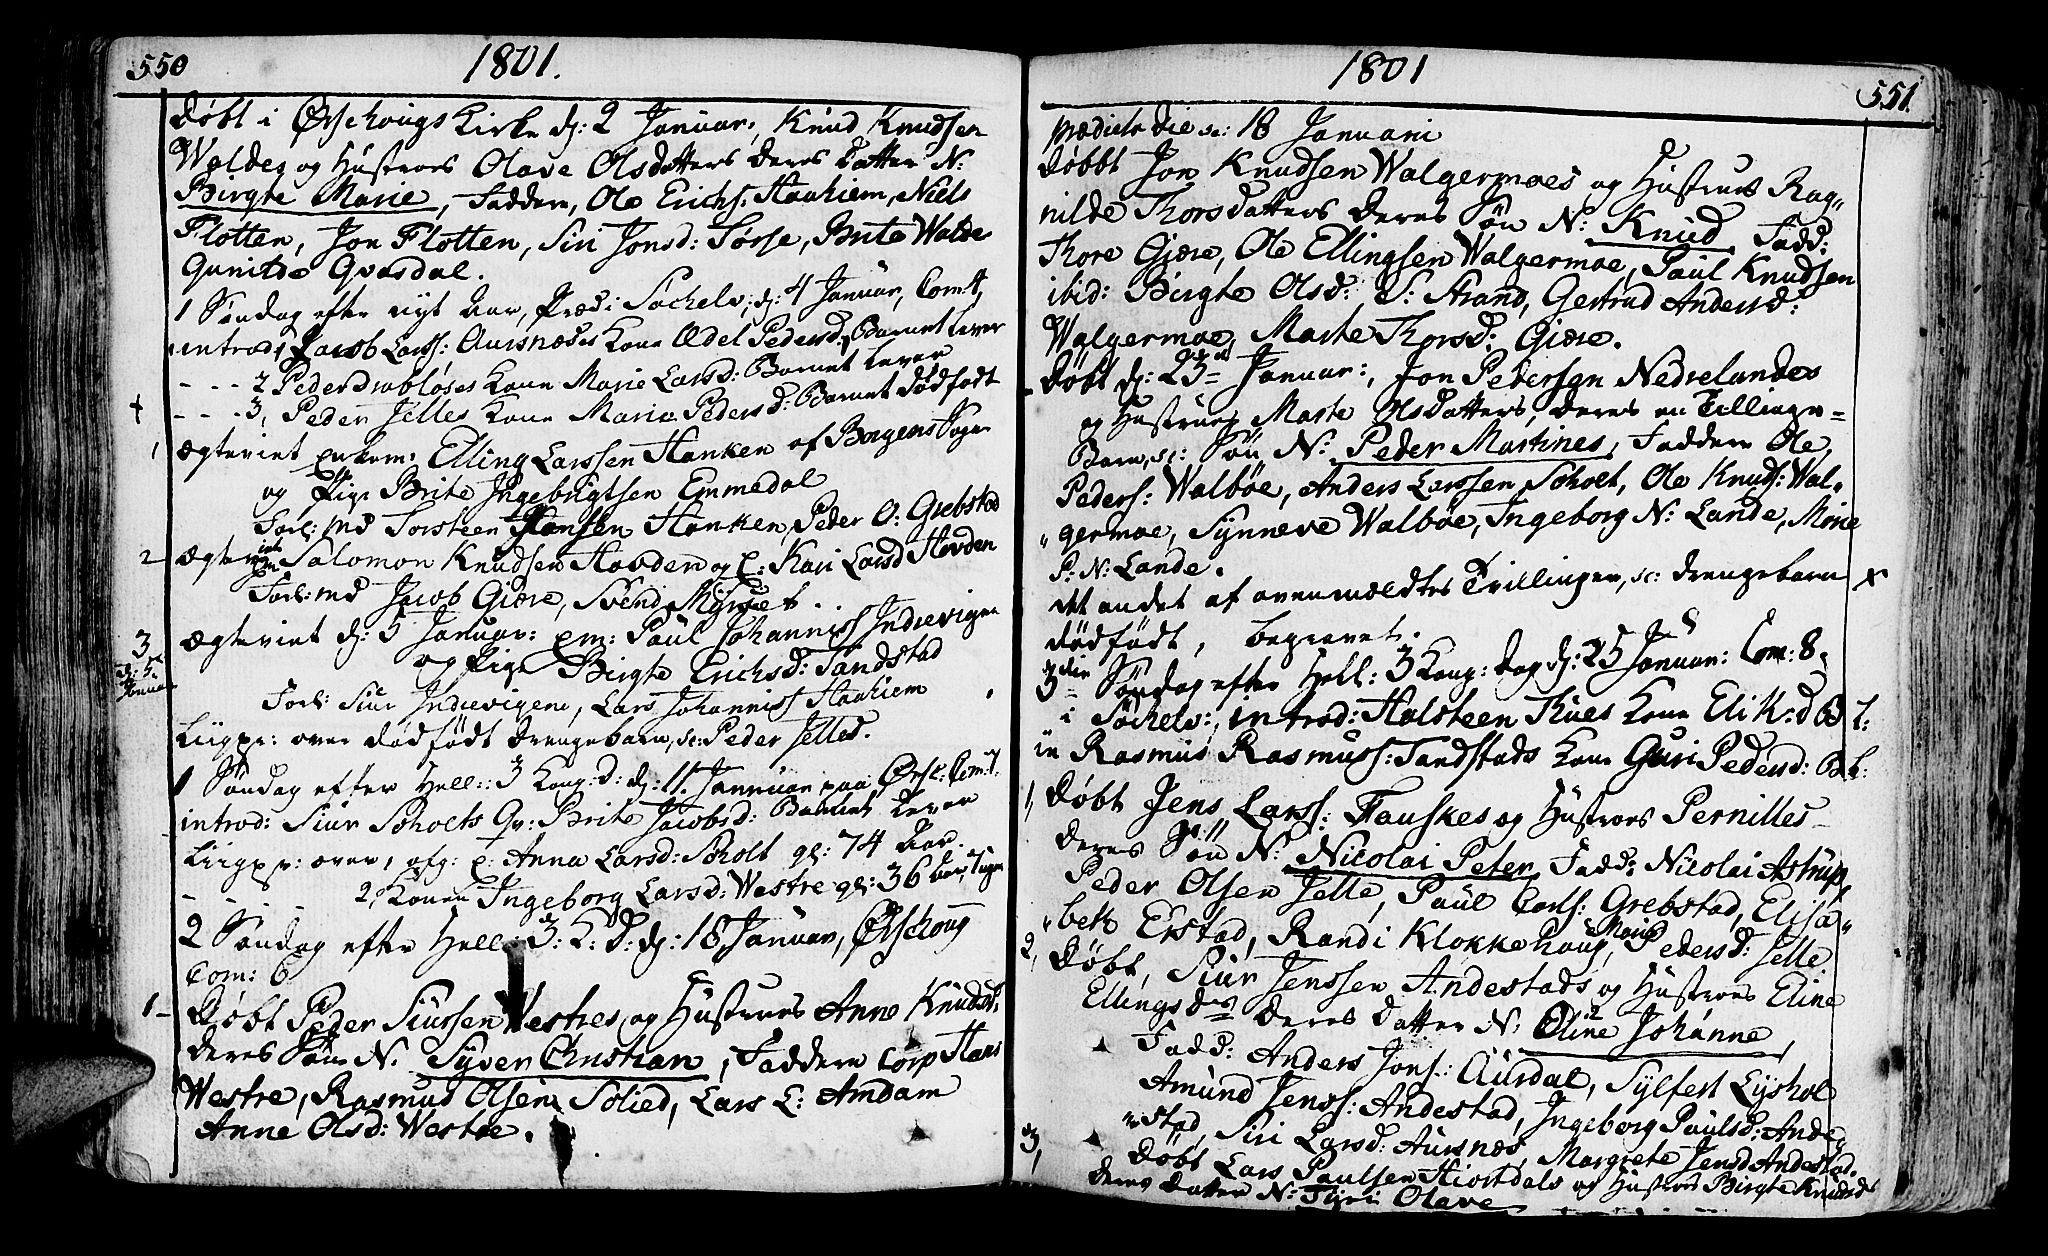 550
1801.
Døbt i Ørschougs Kirke dj: 2 Januar, Knud Knudsen
Waldes og Hustroes Olave Olsdatters deres Datter N:
Birgte Marie, Faddere, Ole Erichs: Haahiem, Niels
Flotten, Jon Flotten, Siri Jonsd: Sørse, Brite Walde
Gunilde Gvasdal.
1 Søndag efter nyt Aar, Præd: i Søchelv: dj: 4 Januar, Com: 7,
introd: 1, Jacob Larss: Aursnæses Kone Ædel Pedersd: Barnet lever
- - - 2 Peder Drabløses Kone Marie Larsd: Barnet lever
- - - 3, Peder Jelles Kone Maria Pedersd: Barnet dødfødt
1 Ægteviet Enkem: Elling Larssen Hanken af Borgens Sogn
og Pige Brite Ingebrigtsen Emmedal
Forl: md Torsteen Hansen Hanken, Peder O: Grebstad
2 Ægteviet Salomon Knudsen Hovden og P: Kari Larsd Hovden
Forl: md Jacob Giøre, Svend Myrset.
3 Ægteviet dj: 5 Januar: em: Paul Johanniss Indrevigen
dj: 5
Januar
og Pige Birgte Erichsd: Tandstad
Forl: Siur Indrevigen, Lars Johanniss Haahiem
Liigpr: over dødfødt Drengebarn, sc: Peder Jelles.
1 Søndag efter Hell: 3 Kong: D: dj: 11 Januar paa Ørsc: Com: 7.
introd: Siur Scholts Qv: Brite Jacobsd: Barnet lever
Liigpr: over, 1, afg: E: Anna Larsd: Scholt gl: 74 Aar.
- - - - 2, Konen Ingeborg Larsd: Westre gl: 36 Aar,
2 Søndag efter Hell: 3: K: D: dj: 18 Januar, Ørschoug
Com: 6
1 - Døbt Peder Siursen Westres og Hustroes Anne Knudsd:
deres Søn N. Syver Christian, Faddere Corp Hans
Westre, Rasmus Olsen Solied, Lars L: Amdam
Anne Olsd: Westre.
1801
551.
prædicto die sc: 18 Januarii
Døbt Jon Knudsen Walgermoes og Hustrues Rag„
nilde Thorsdatters deres Søn N: Knud Fadd:
Thore Giøre, Ole Ellingsen Walgermoe, Paul Knudsen
ibid: Birgte Olsd: S: Strand, Gertrud Andersd:
Walgermoe, Marte Thorsd: Giøre.
Døbt dj: 23 Januar:, Jon Pedersen Nedrelandes
og Hustrues Marte Olsdatters, deres en Tvillinge=
Barn, sc: Søn N: Peder Martines, Faddere Ole
Peders: Walbøe, Anders Larssen Scholt, Ole Knuds: Wal„
„germoe, Synneve Walbøe, Ingeborg N: Lande, Marie
P: N: Lande.
Det andet af ovenmeldtes Tvillinger, sc: Drengebarn x
dødfødt, begravet.
3die Søndag efter Hell: 3 Kong: Dag dj: 25 Januar: Com: 8.
i Søchelv:, introd: Halsteen Thues Kone Eli K:d B l:
in Rasmus Rasmuss: Tandstads Kone Guri Pedersd: B l:
1, Døbt Jens Larss: Fauskes og Hustroes Pernilles
deres Søn N: Nicolai Peter, Fadd: Nicolai Astrup,
Peder Olsen Jelle, Paul Carls: Grebstad, Elisa„
„bet Erstad, Randi Klokkehoug, Marie Pedersd: Jelle
2, Døbt, Siur Jenssen Andestads og Hustroes Eline
Ellingsdrs deres Datter N: Oline Johanne,
Fadd: Anders Jons: Aursdal, Sylfest Lyshol
Amund Jenss: Andestad, Ingeborg Paulsd: Ande„
„stad, Siri Larsd: Aursnæs, Margrete Jensd Andestad.
3, Døbt Lars Paulsen Hiortdals og Hustroes Birgte Knudsds
deres Datter N: Siri Olave